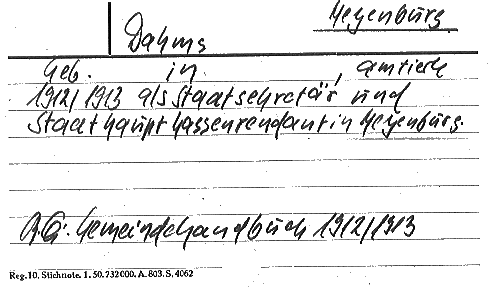 Meyenburg
Dahms
Geb. in , amtierte
1912/1913 als Stadtsekretär und
Stadthauptkassenrendant in Meyenburg.
A.G.: Gemeindehandbuch 1912/1913
Reg. 10. Stichnote. 1. 50. 732000. A. 803. S. 4062